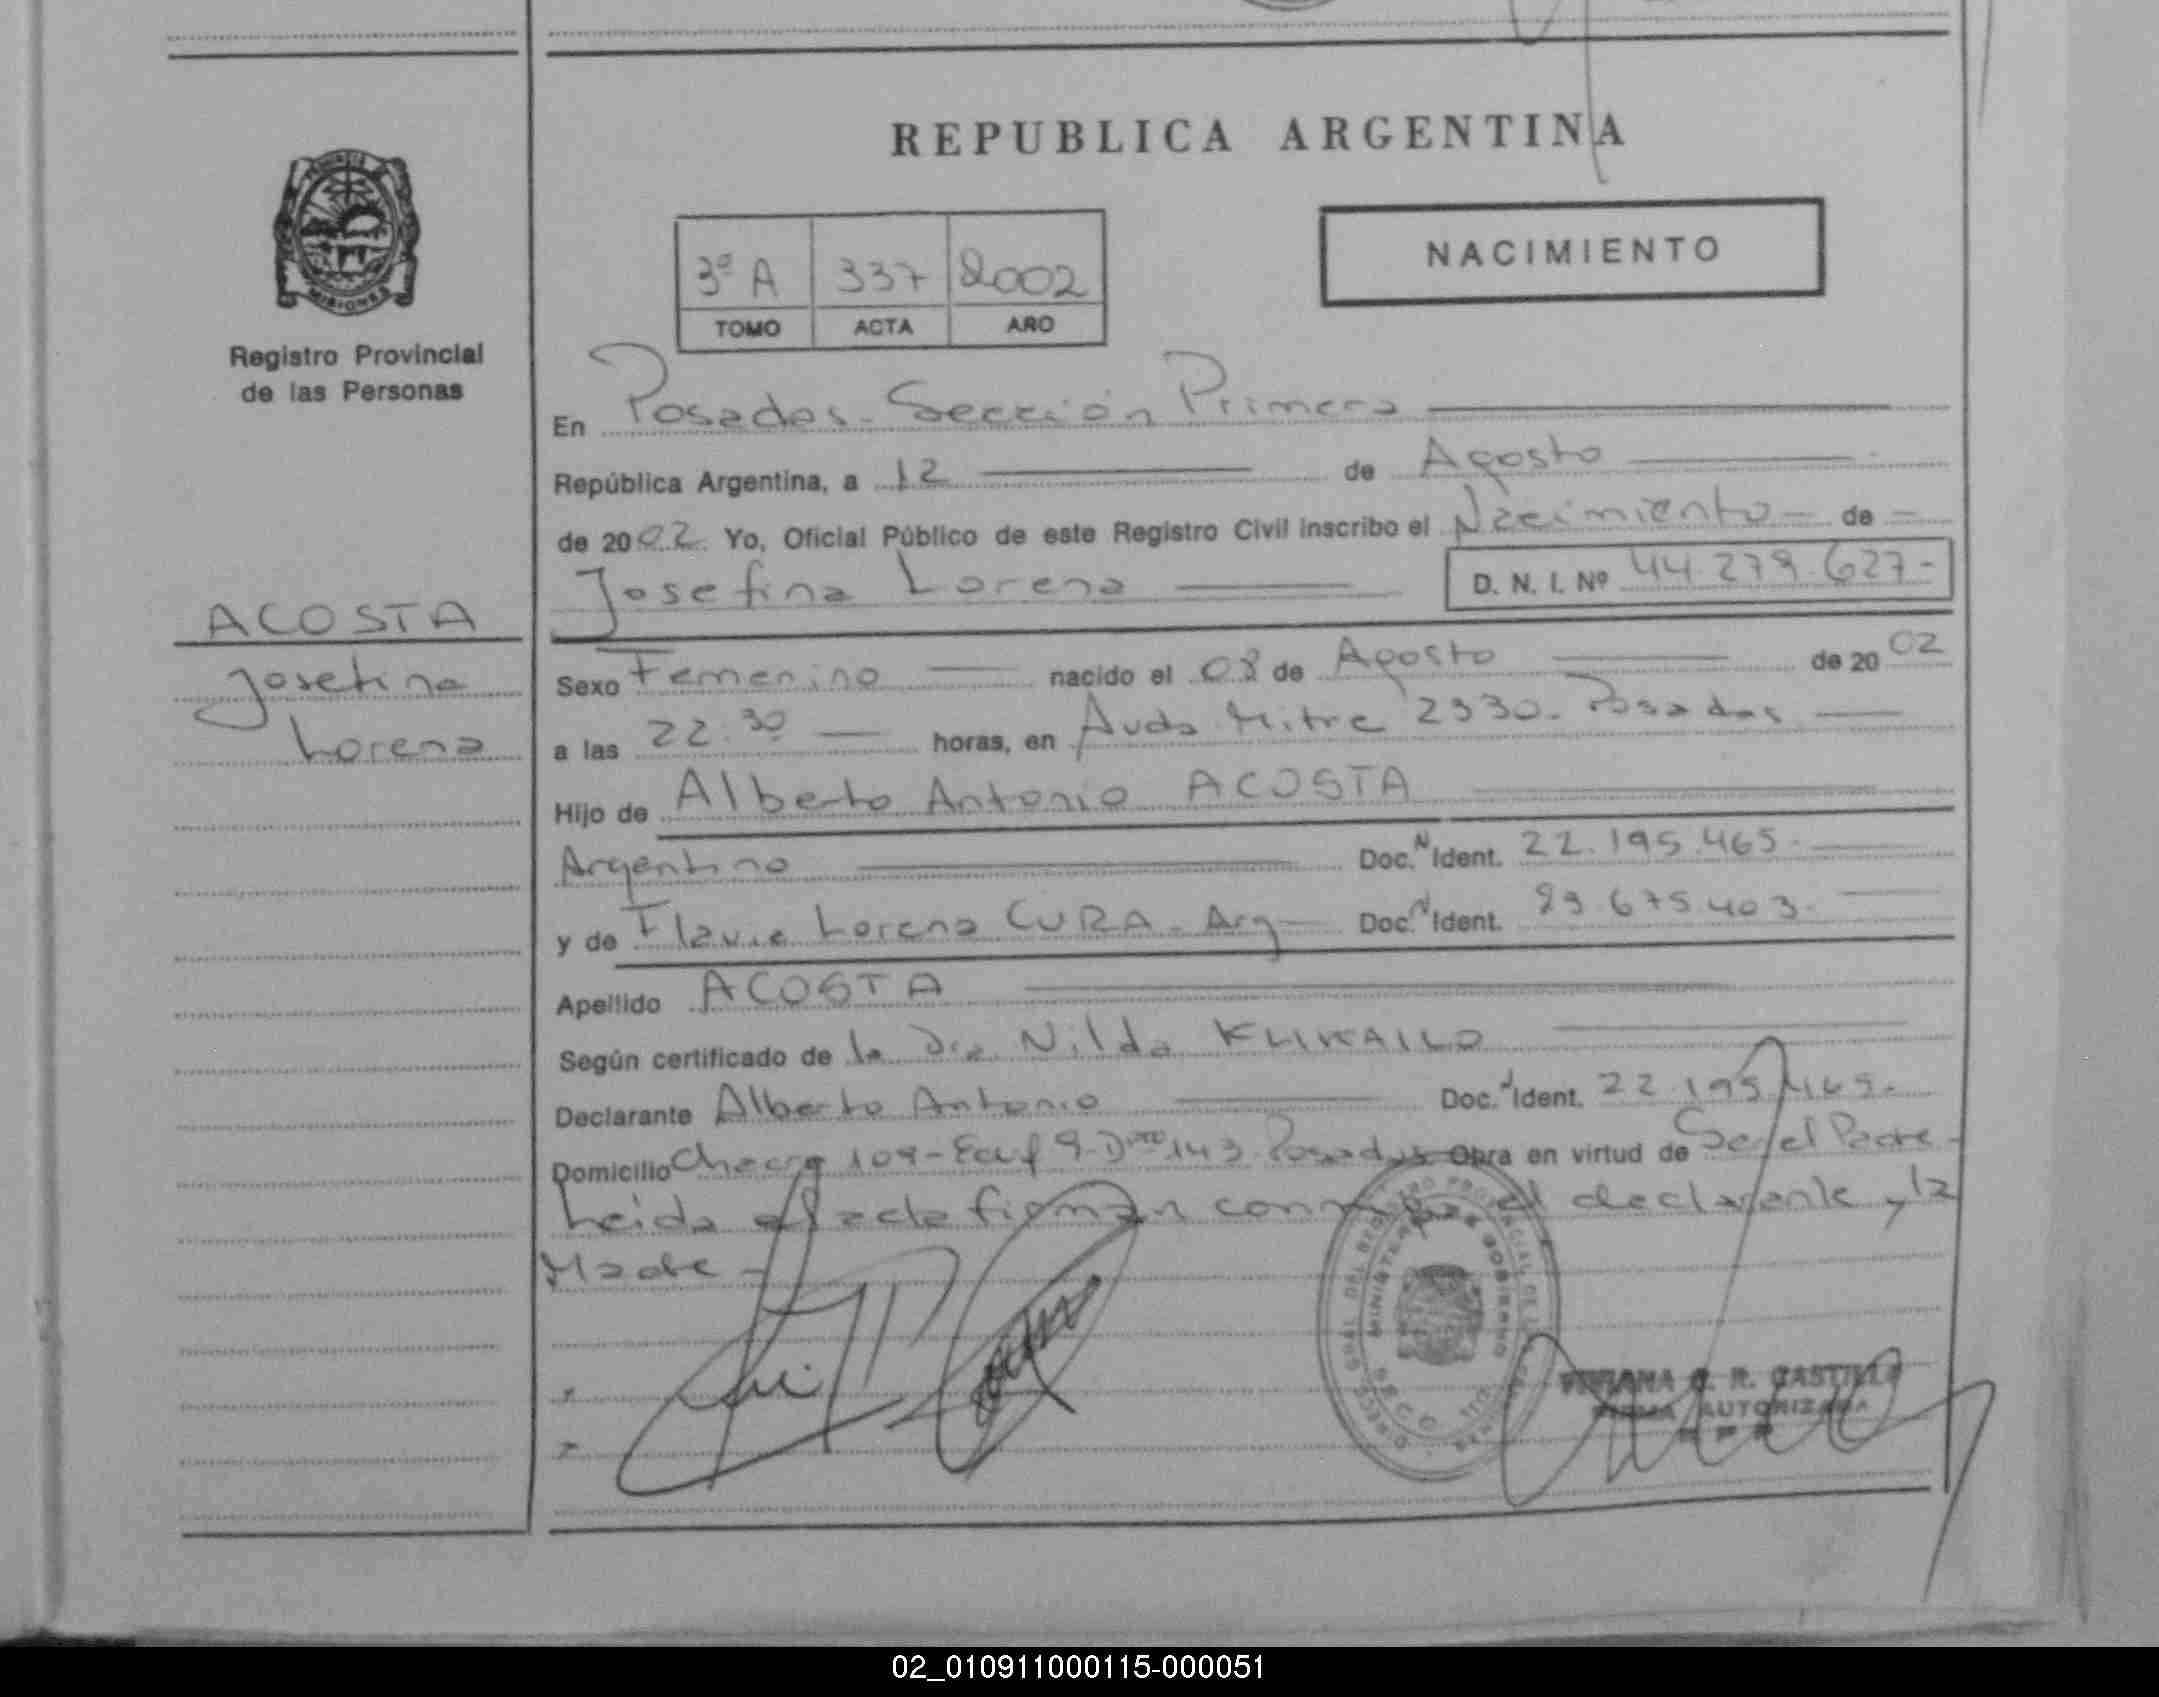 REPUBLICA ARGENTINA
MISIONES
Registro Provincial
de las Personas
3º A 337 2002
TOMO ACTA AÑO
NACIMIENTO
En Posadas - Sección Primera
República Argentina, a 12 de Agosto
de 2002 Yo, Oficial Público de este Registro Civil inscribo el Nacimiento de
Josefina Lorena D. N. I. Nº 44.279.627-
ACOSTA
Josefina
Lorena
Sexo Femenino nacido el 08 de Agosto de 2002
a las 22.30 horas, en Avda Mitre 2330. Posadas
Hijo de Alberto Antonio ACOSTA
Argentino Doc. N Ident. 22.195.465.
y de Flavia Lorena CURA - Arg Doc. N Ident. 23.675.403.
Apellido ACOSTA
Según certificado de la Dra Nilda
Declarante Alberto Antonio Doc. N Ident. 22.195.465.
Domicilio Chacra 109 - Edif 9 - Dto 143 Posadas Obra en virtud de Ser el Padre -
Leida el acta firman conmigo el declarante y la
Madre -
MINISTERIO DE GOBIERNO
R. CASTILLO
FIRMA AUTORIZADA
02_010911000115-000051